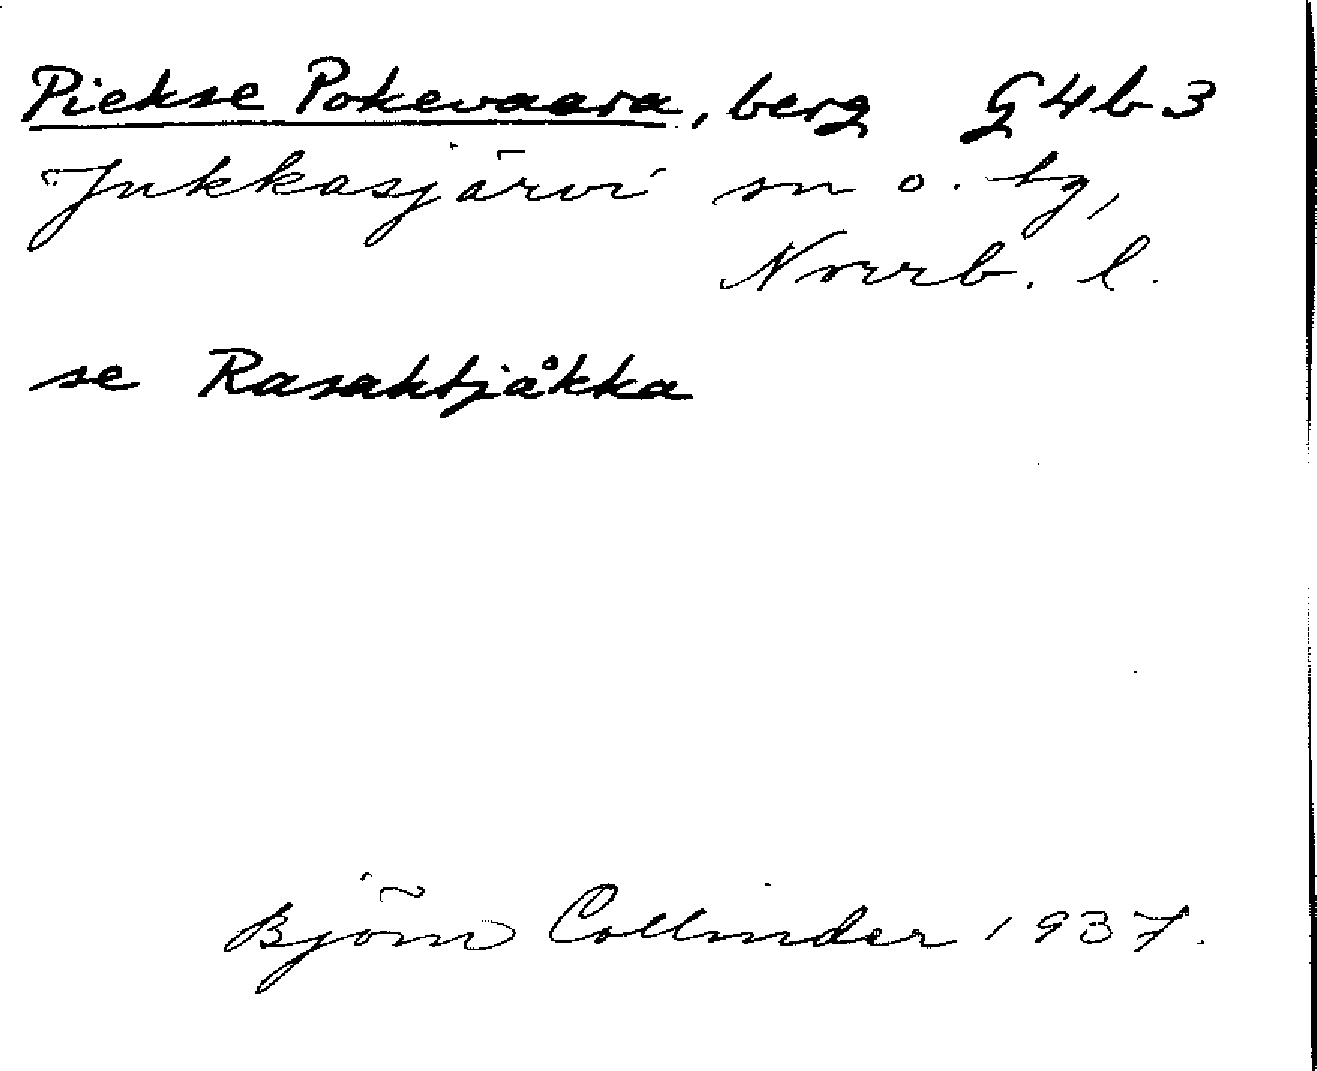 Piekse Pokevaara, berg G4b3
Jukkasjärvi sn o. tg,
Norrb. l.
se Rasaktjåkka
Björn Collinder 1937.